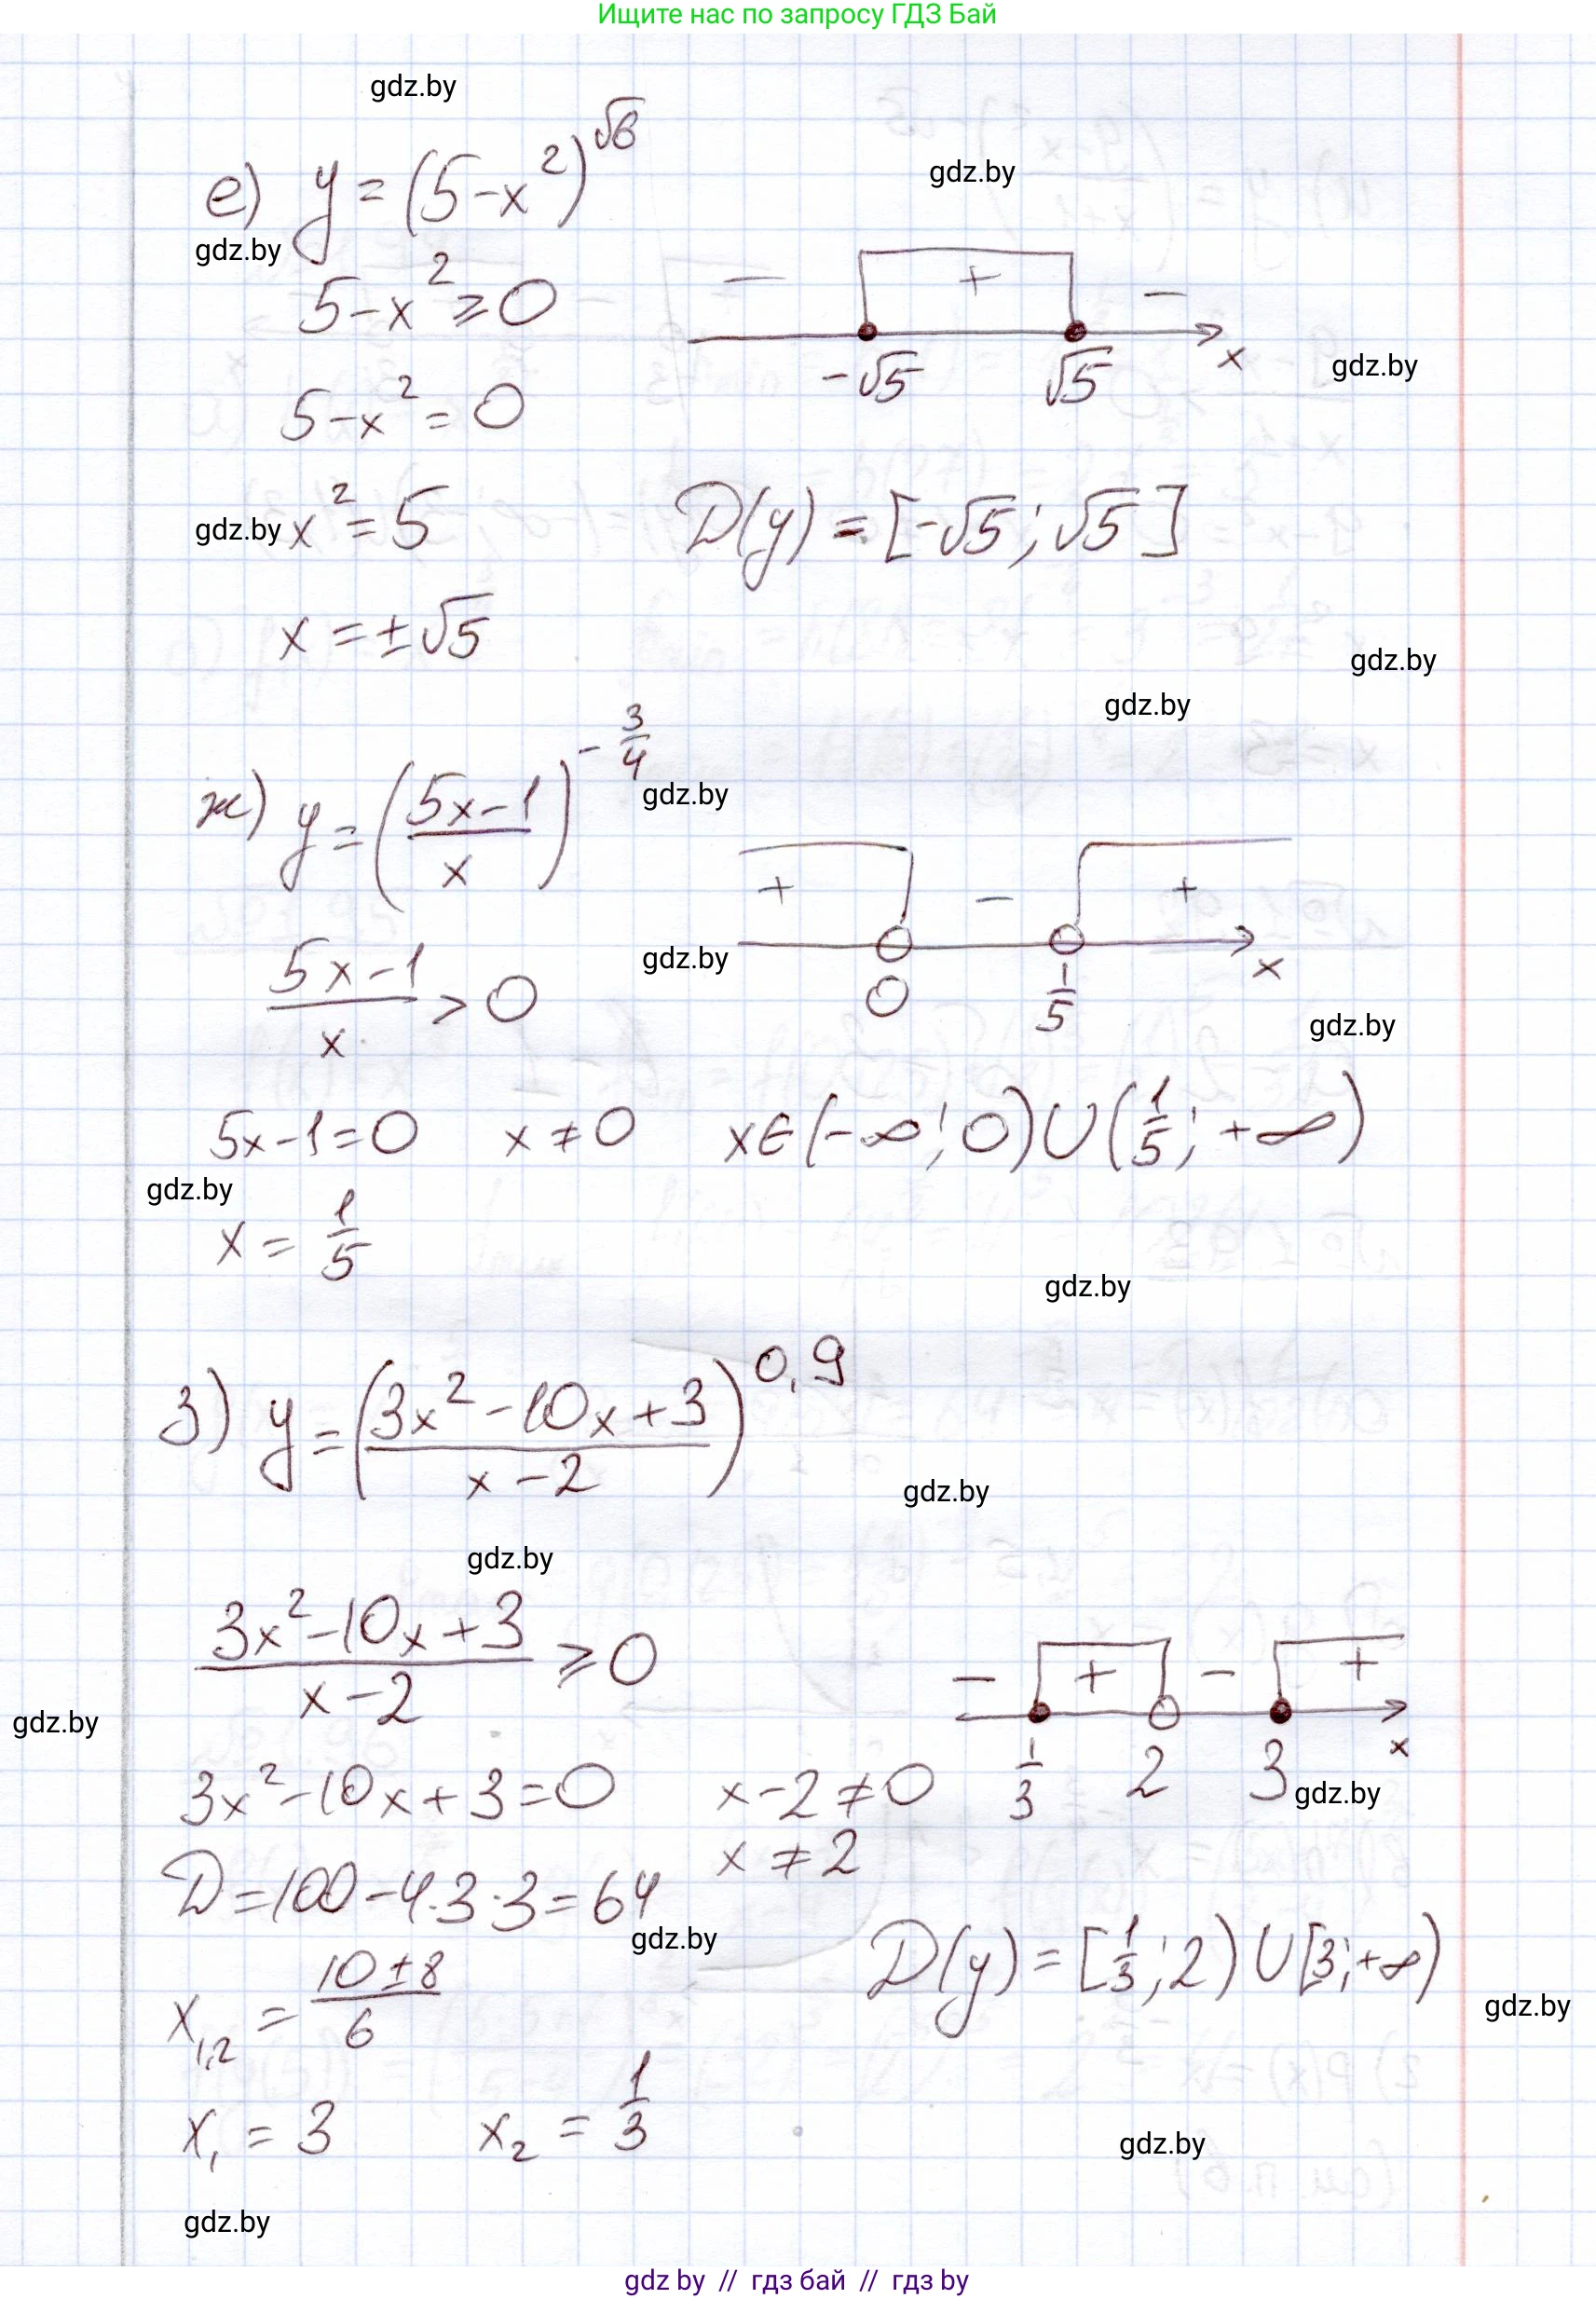 Ищите нас по запросу ГДЗ Бай
gdz.by
е) y = (5-x²)^√6
gdz.by
gdz.by
5-x² ⩾ 0
- + -
-√5 √5 x
gdz.by
5-x² = 0
gdz.by x² = 5
D(y) = [-√5; √5]
x = ±√5
gdz.by
gdz.by
ж) y = ((5x-1)/x)^(-3/4)
gdz.by
+ - +
0 1/5 x
gdz.by
(5x-1)/x > 0
gdz.by
5x-1=0 x≠0 x∈(-∞; 0)∪(1/5; +∞)
gdz.by
x = 1/5
gdz.by
з) y = ((3x²-10x+3)/(x-2))^0,9
gdz.by
gdz.by
(3x²-10x+3)/(x-2) ⩾ 0
- + - +
1/3 2 3 x
gdz.by
gdz.by
3x²-10x+3=0 x-2≠0
x≠2
D=100-4·3·3=64
gdz.by
D(y) = [1/3; 2)∪[3; +∞)
x₁,₂ = (10±8)/6
gdz.by
x₁ = 3 x₂ = 1/3
gdz.by
gdz.by
gdz by // гдз бай // гдз by